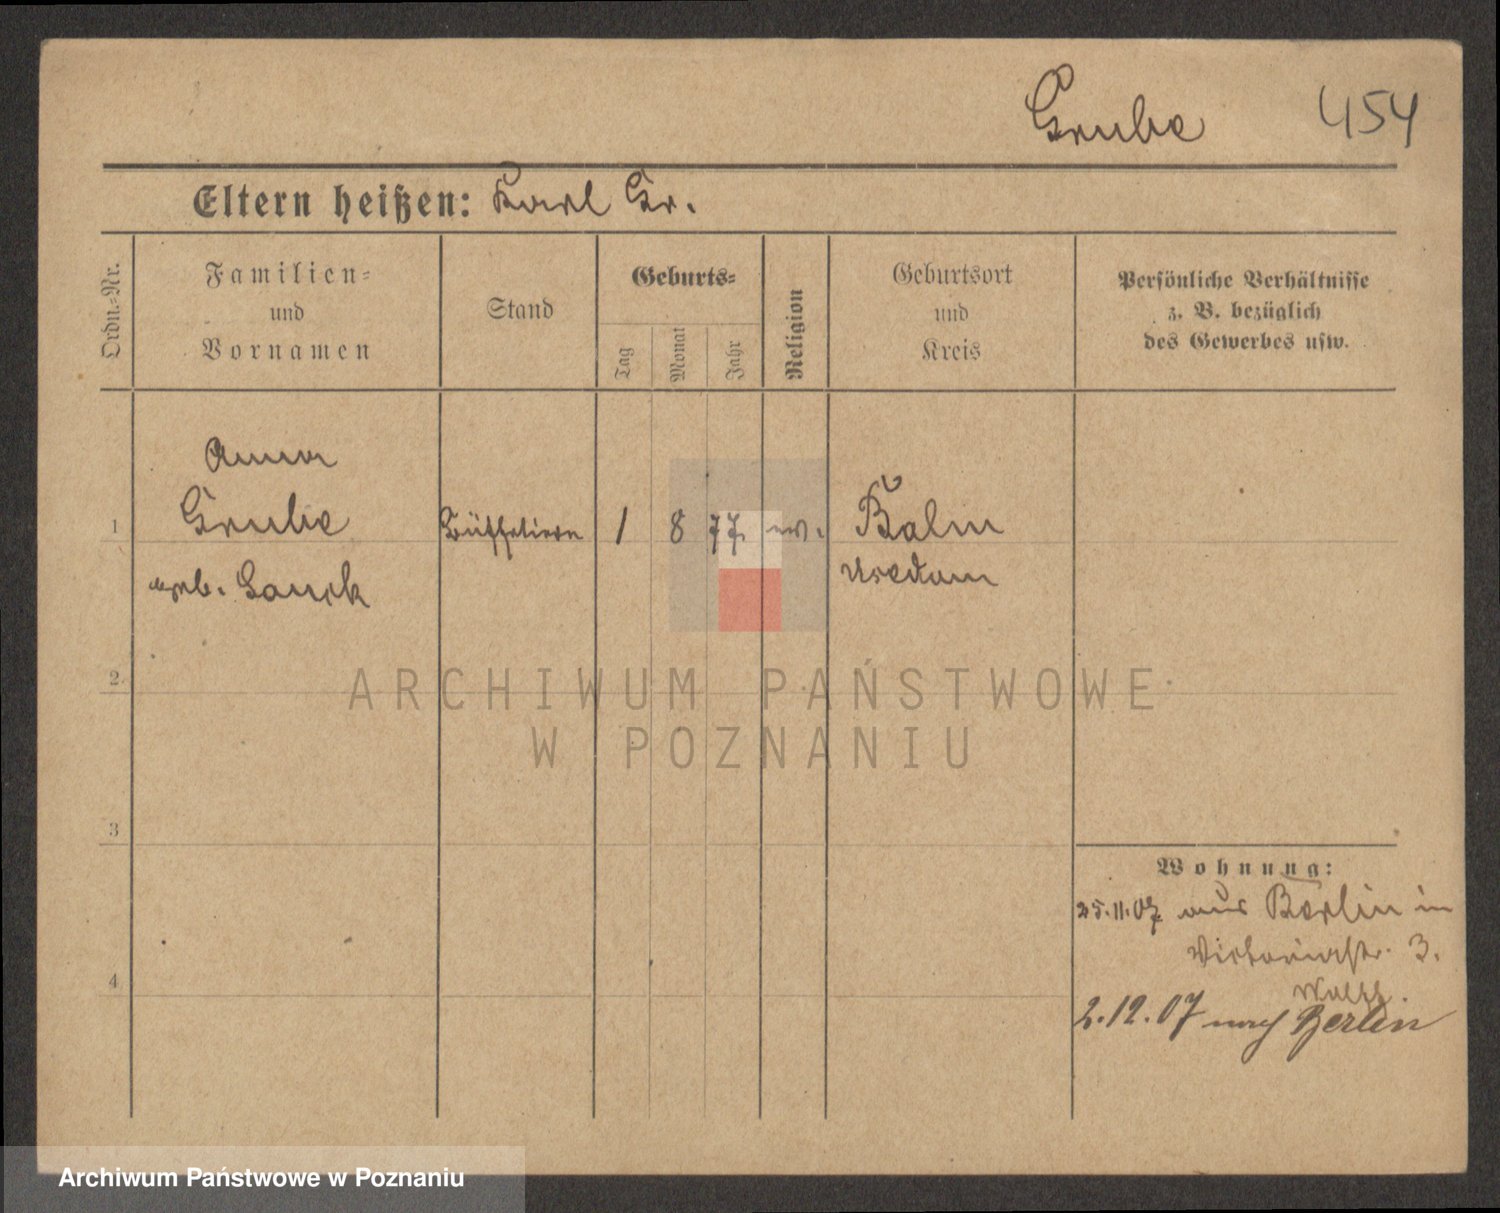 Grube 454
Eltern heißen: Karl Gr.
Ordn.-Nr.
Familien-
und
Vornamen
Stand
Geburts-
Tag
Monat
Jahr
Religion
Geburtsort
und
Kreis
Persönliche Verhältnisse
z. B. bezüglich
des Gewerbes usw.
Anna
1 Grube Büffetiere 1 8 77. ev. Balm
geb. Usedom
2
ARCHIWUM PAŃSTWOWE
W POZNANIU
3
Wohnung:
25.11.07 aus Berlin in
Victoriastr. 3.
4
2.12.07 nach Berlin
Archiwum Państwowe w Poznaniu